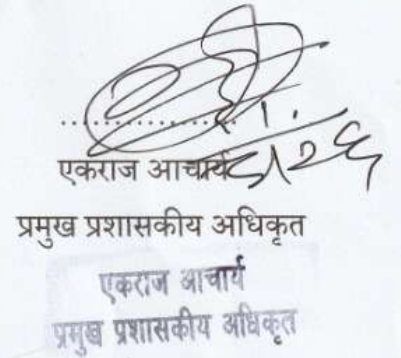 ....................
एकराज आचार्य
प्रमुख प्रशासकीय अधिकृत
एकराज आचार्य
प्रमुख प्रशासकीय अधिकृत